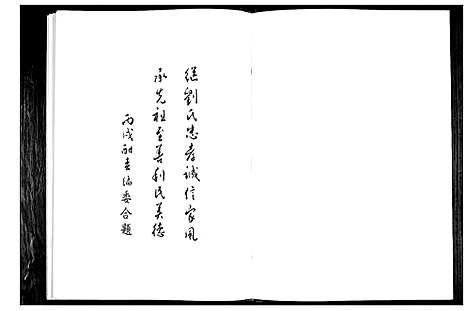 继刘氏忠孝诚信家风
承先祖至善利民美德
丙戌 编委合题